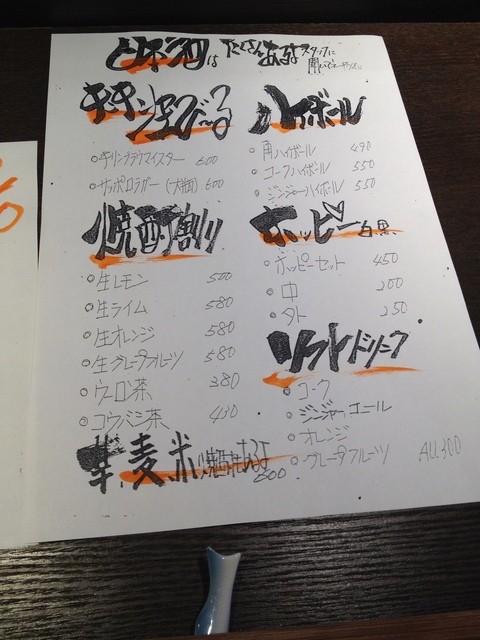 日本酒はたくさんあるよスタッフに
聞いて
キンキン生び〜る
キリンブラウマイスター 600
サッポロラガー(大瓶) 600
焼酎割り
生レモン 500
生ライム 580
生オレンジ 580
生グレープフルーツ 580
ウーロン茶 380
コウバシ茶 430
芋、麦、米 焼酎もあるよ
600
ハイボール
角ハイボール 490
コークハイボール 550
ジンジャーハイボール 550
ホッピー 白黒
ホッピーセット 450
中 200
外 250
ソフトドリンク
コーク
ジンジャーエール
オレンジ
グレープフルーツ ALL300